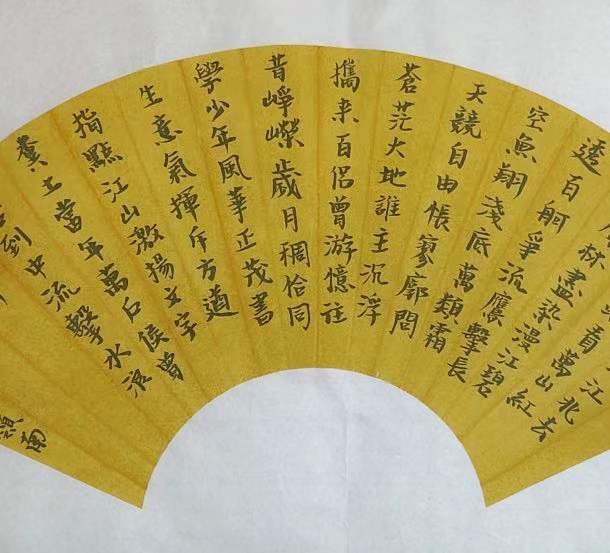 江北去
看萬山紅
林盡染漫江碧
透百舸爭流鷹擊長
空魚翔淺底萬類霜
天競自由悵寥廓問
蒼茫大地誰主沉浮
攜来百侶曾游憶往
昔崢嶸歲月稠恰同
學少年風華正茂書
生意氣揮斥方遒
指點江山激揚文字
糞土當年萬戶侯曾
到中流擊水浪
嶺南